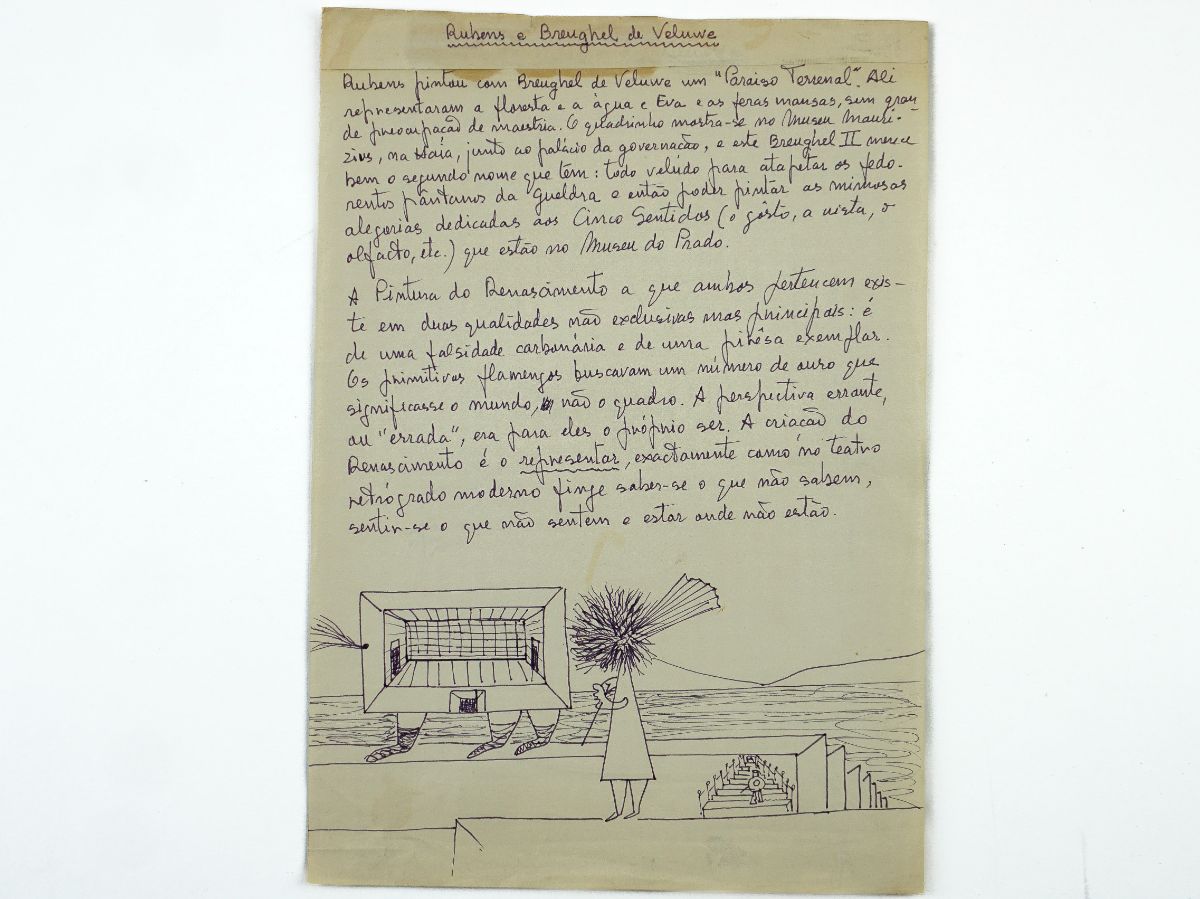 Rubens e Breughel de Veluwe
Rubens pintou com Breughel de Veluwe um "Paraiso Terrenal". Ali
representaram a floresta e a àgua e Eva e as feras mansas, sem gran-
de preocupação de maestria. O quadrinho mostra-se no Museu Mauri-
zius, na Haia, junto ao palácio da governação, e este Breughel II merece
bem o segundo nome que tem: todo velúdo para atapetar os fedo-
rentos pântanos da Gueldra e então poder pintar as mimosas
alegorias dedicadas aos Cinco Sentidos (o gôsto, a vista, o
olfacto, etc.) que estão no Museu do Prado.
A Pintura do Renascimento a que ambos pertencem exis-
te em duas qualidades não exclusivas mas principais: é
de uma falsidade carbonária e de uma pirêsa exemplar.
Os primitivos flamengos buscavam um número de ouro que
significasse o mundo, não o quadro. A perspectiva errante,
ou "errada", era para eles o próprio ser. A criação do
Renascimento é o representar, exactamente como no teatro
retrógrado moderno finge saber-se o que não sabem,
sentir-se o que não sentem e estar onde não estão.